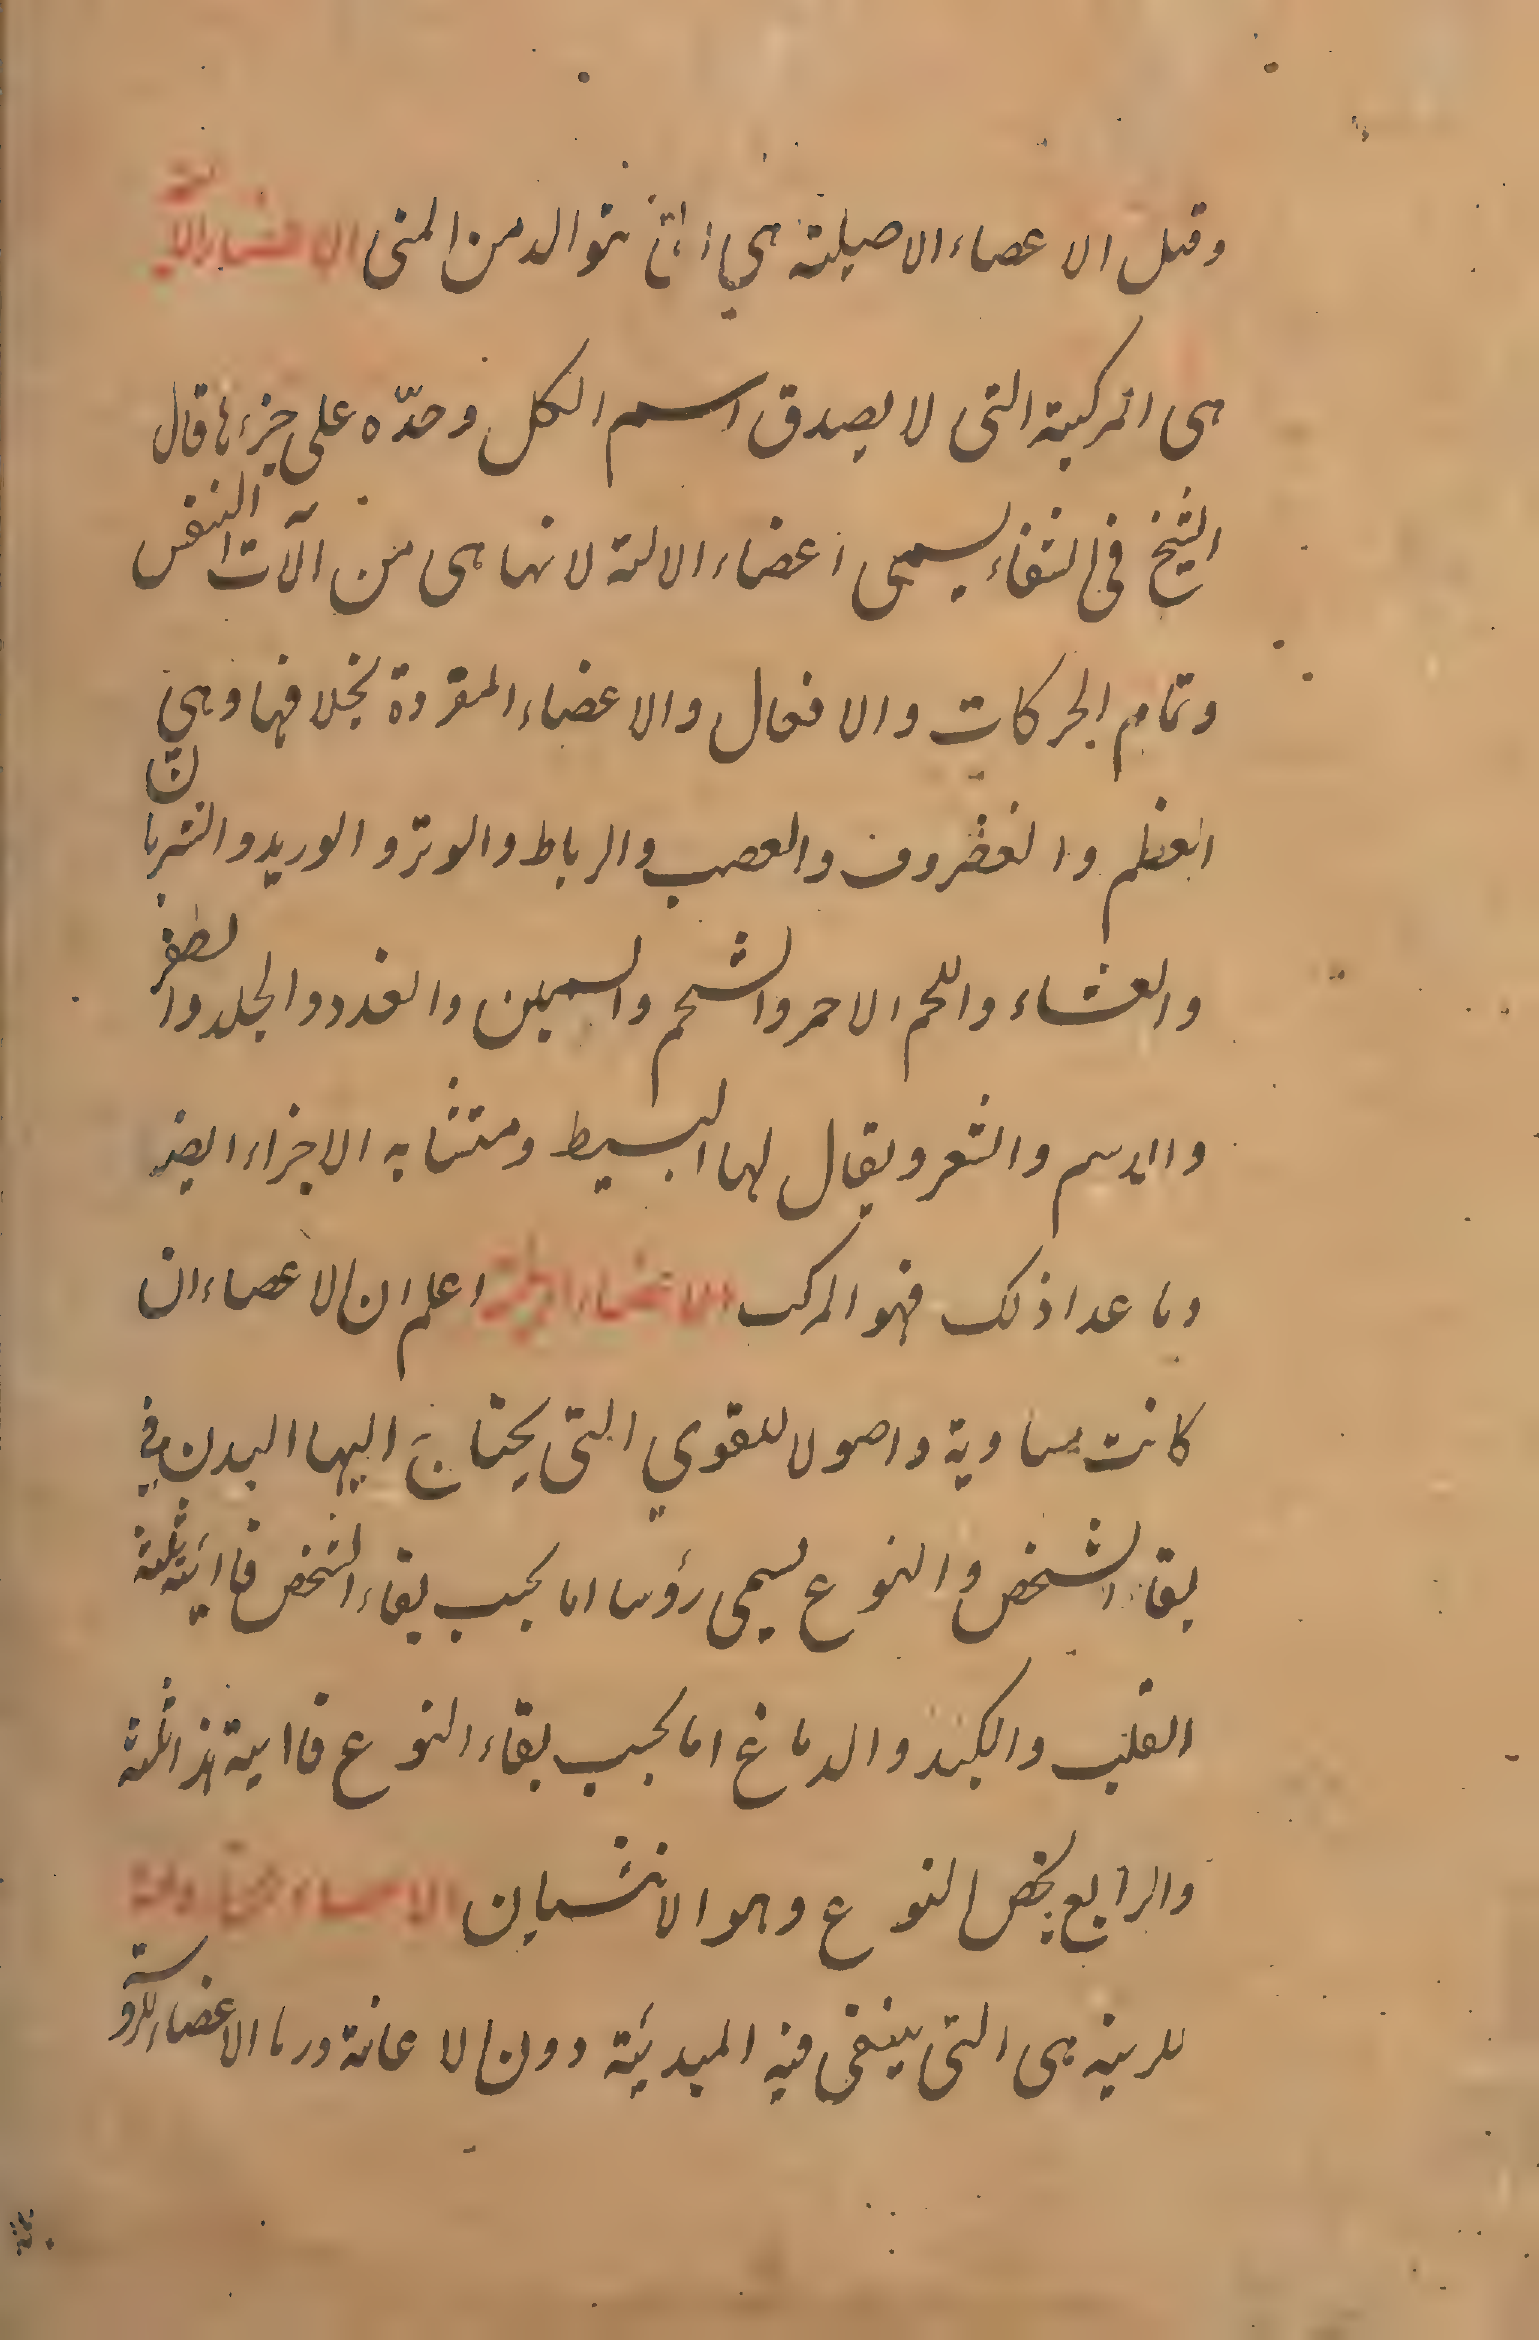 وقيل الاعضاء الاصيلة هي التي تتوالد من المنى الاعضاء الالية
هى المركبة التى لا يصدق اسم الكل وحدّه على جزءها قال
الشيخ فى الشفاء يسمى اعضاء الالية لانها هى من آلات النفس
وتمام الحركات والافعال والاعضاء المفردة بخلافها وهي
العظم والغضروف والعصب والرباط والوتر والوريد والشريان
والغشاء واللحم الاحمر والشحم والسمين والغدد والجلد والظفر
والدسم والشعر ويقال لها البسيط ومتشابه الاجزاء ايضا
وما عدا ذلك فهو المركب الاعضاء الرئيسة اعلم ان الاعضاء ان
كانت مبادية واصولا للقوي التى يحتاج اليها البدن في
بقاء الشخص والنوع يسمى رؤسا اما بحسب بقاء الشخص ثلثة
القلب والكبد والدماغ اما بحسب بقاء النوع هذا ثلثة
والرابع يخص النوع وهو الانثيان الاعضاء
هى التى ينبغى فيه المبدئية دون الاعانة الاعضاء